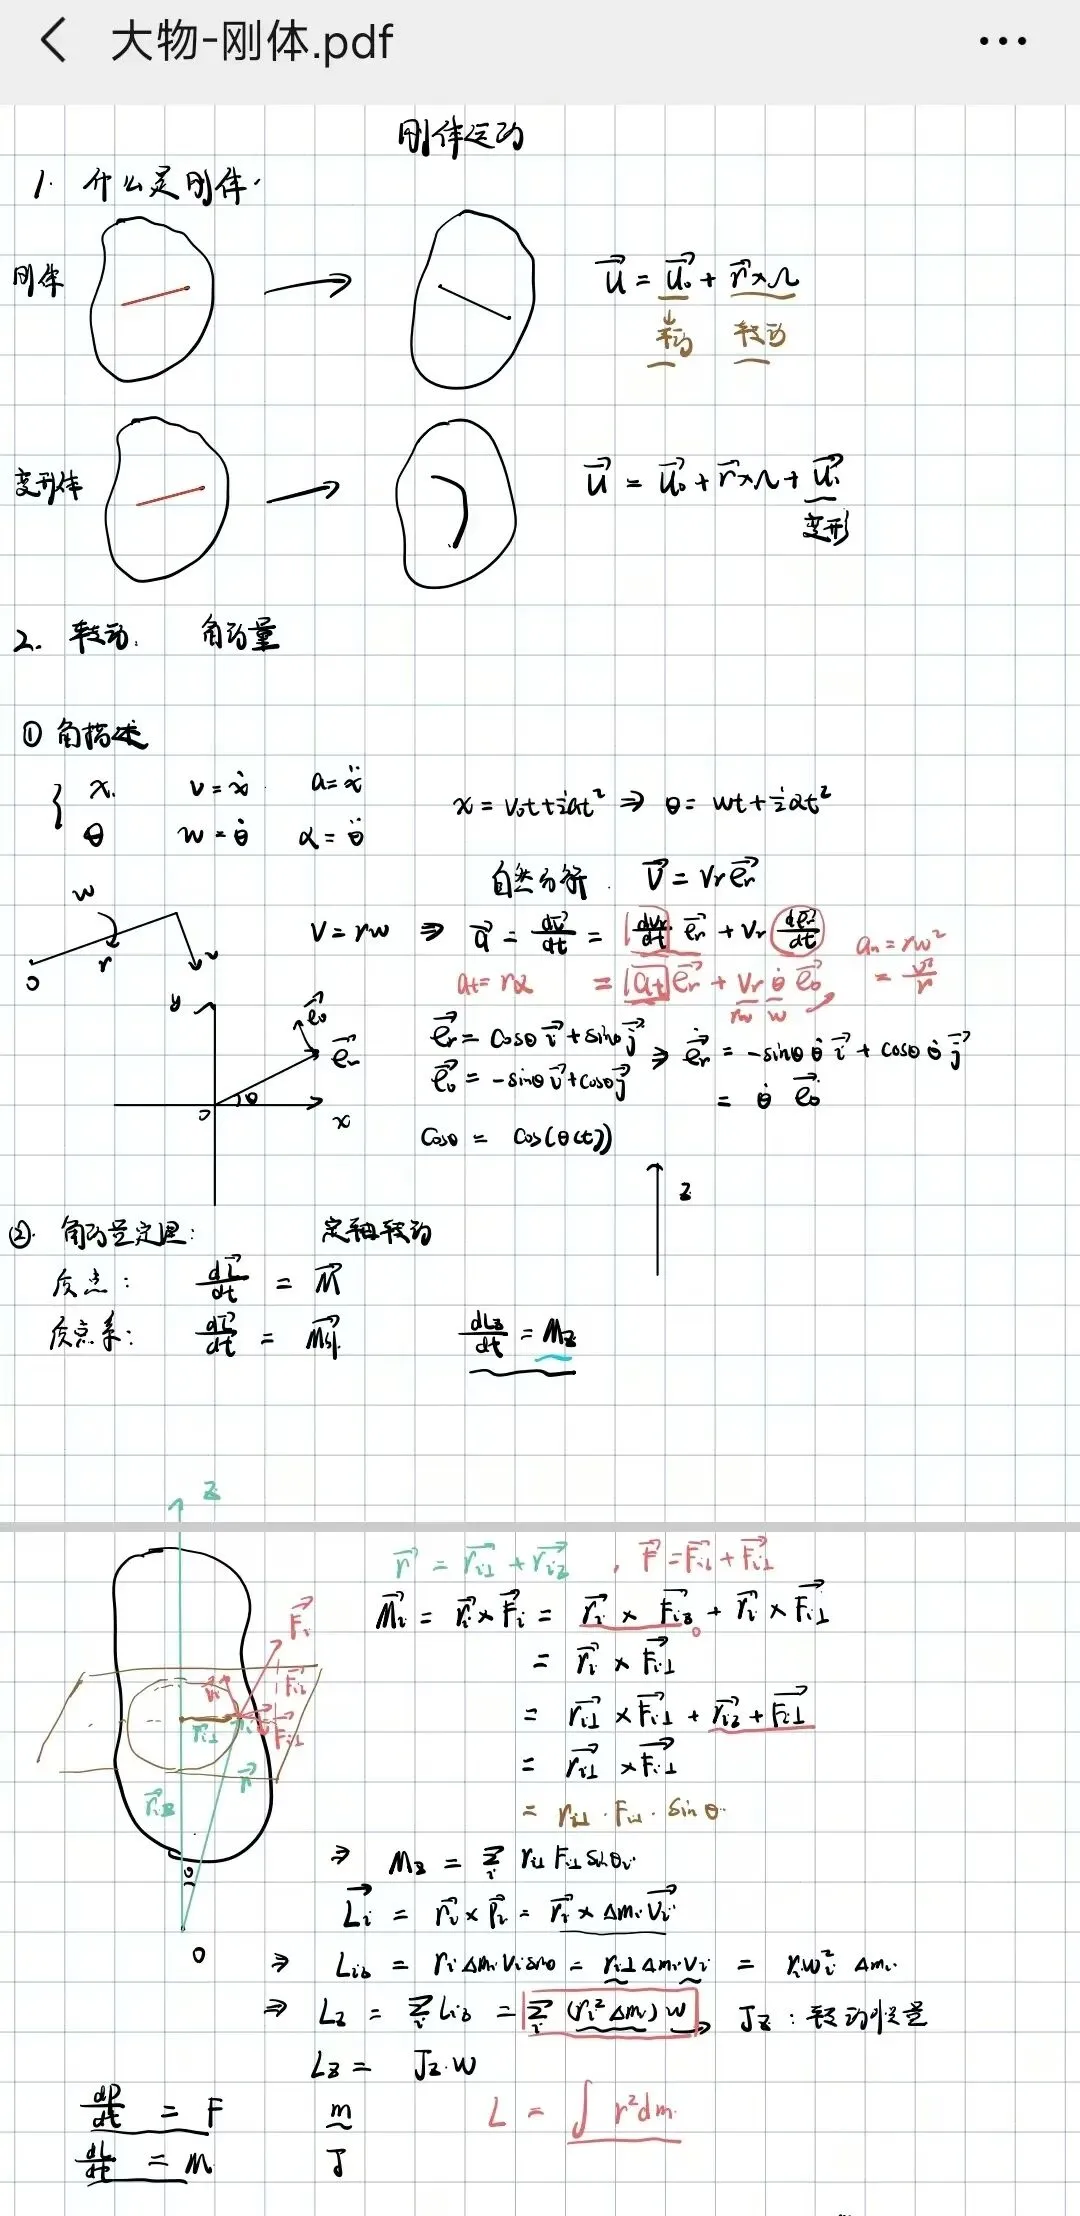 大物-刚体.pdf
刚体运动
1. 什么是刚体.
刚体
u⃗ = u⃗₀ + r⃗×Ω
平动 转动
变形体
u⃗ = u⃗₀ + r⃗×Ω + u⃗₁
变形
2. 转动. 角动量
① 角描述
x. v = ẋ a = ẍ
x = v₀t + ½at² ⇒ θ = wt + ½αt²
θ w = θ̇ α = θ̈
自然分解. V⃗ = Vr e⃗r
w
r v
O
V = rw ⇒ a⃗ = dv⃗/dt = dVr/dt e⃗r + Vr de⃗r/dt
aₙ = rw²
at = rα = at e⃗r + Vr θ̇ e⃗θ
= v²/r
rw w
y e⃗θ
e⃗r
O θ x
e⃗r = cosθ i⃗ + sinθ j⃗ ⇒ ė⃗r = -sinθ θ̇ i⃗ + cosθ θ̇ j⃗
e⃗θ = -sinθ i⃗ + cosθ j⃗
= θ̇ e⃗θ
cosθ = cos(θ(t))
z
②. 角动量定理: 定轴转动
质点: dL⃗/dt = M⃗
质点系: dL⃗/dt = M⃗外
dLz/dt = Mz
z
r⃗ = r⃗i⊥ + r⃗iz , F⃗ = F⃗iz + F⃗i⊥
M⃗i = r⃗i × F⃗i = r⃗i × F⃗iz + r⃗i × F⃗i⊥
0
= r⃗i × F⃗i⊥
= r⃗i⊥ × F⃗i⊥ + r⃗iz + F⃗i⊥
= r⃗i⊥ × F⃗i⊥
= ri⊥ · Fi⊥ · sinθ.
F⃗i
F⃗iz
F⃗i⊥
v⃗i
r⃗i⊥
r⃗
r⃗iz
θ
O
⇒ Mz = Σi ri⊥ Fi⊥ sinθi
L⃗i = r⃗i × P⃗i = r⃗i × Δmi V⃗i
⇒ Liz = ri Δmi Vi sinθ = ri⊥ Δmi Vi = ri wi² Δmi
⇒ Lz = Σi Liz = Σi (ri² Δmi) w Jz : 转动惯量
Lz = Jz · w
dP/dt = F m L = ∫ r² dm.
dL/dt = M J